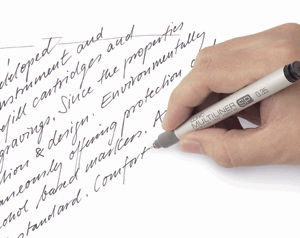 developed
instrument and
refill cartridges and
gravings. Since the properties
tion & design. Environmentally
taneously offering protection
ohol based markers. A
standard. Comforte
MULTILINER SP 0.35